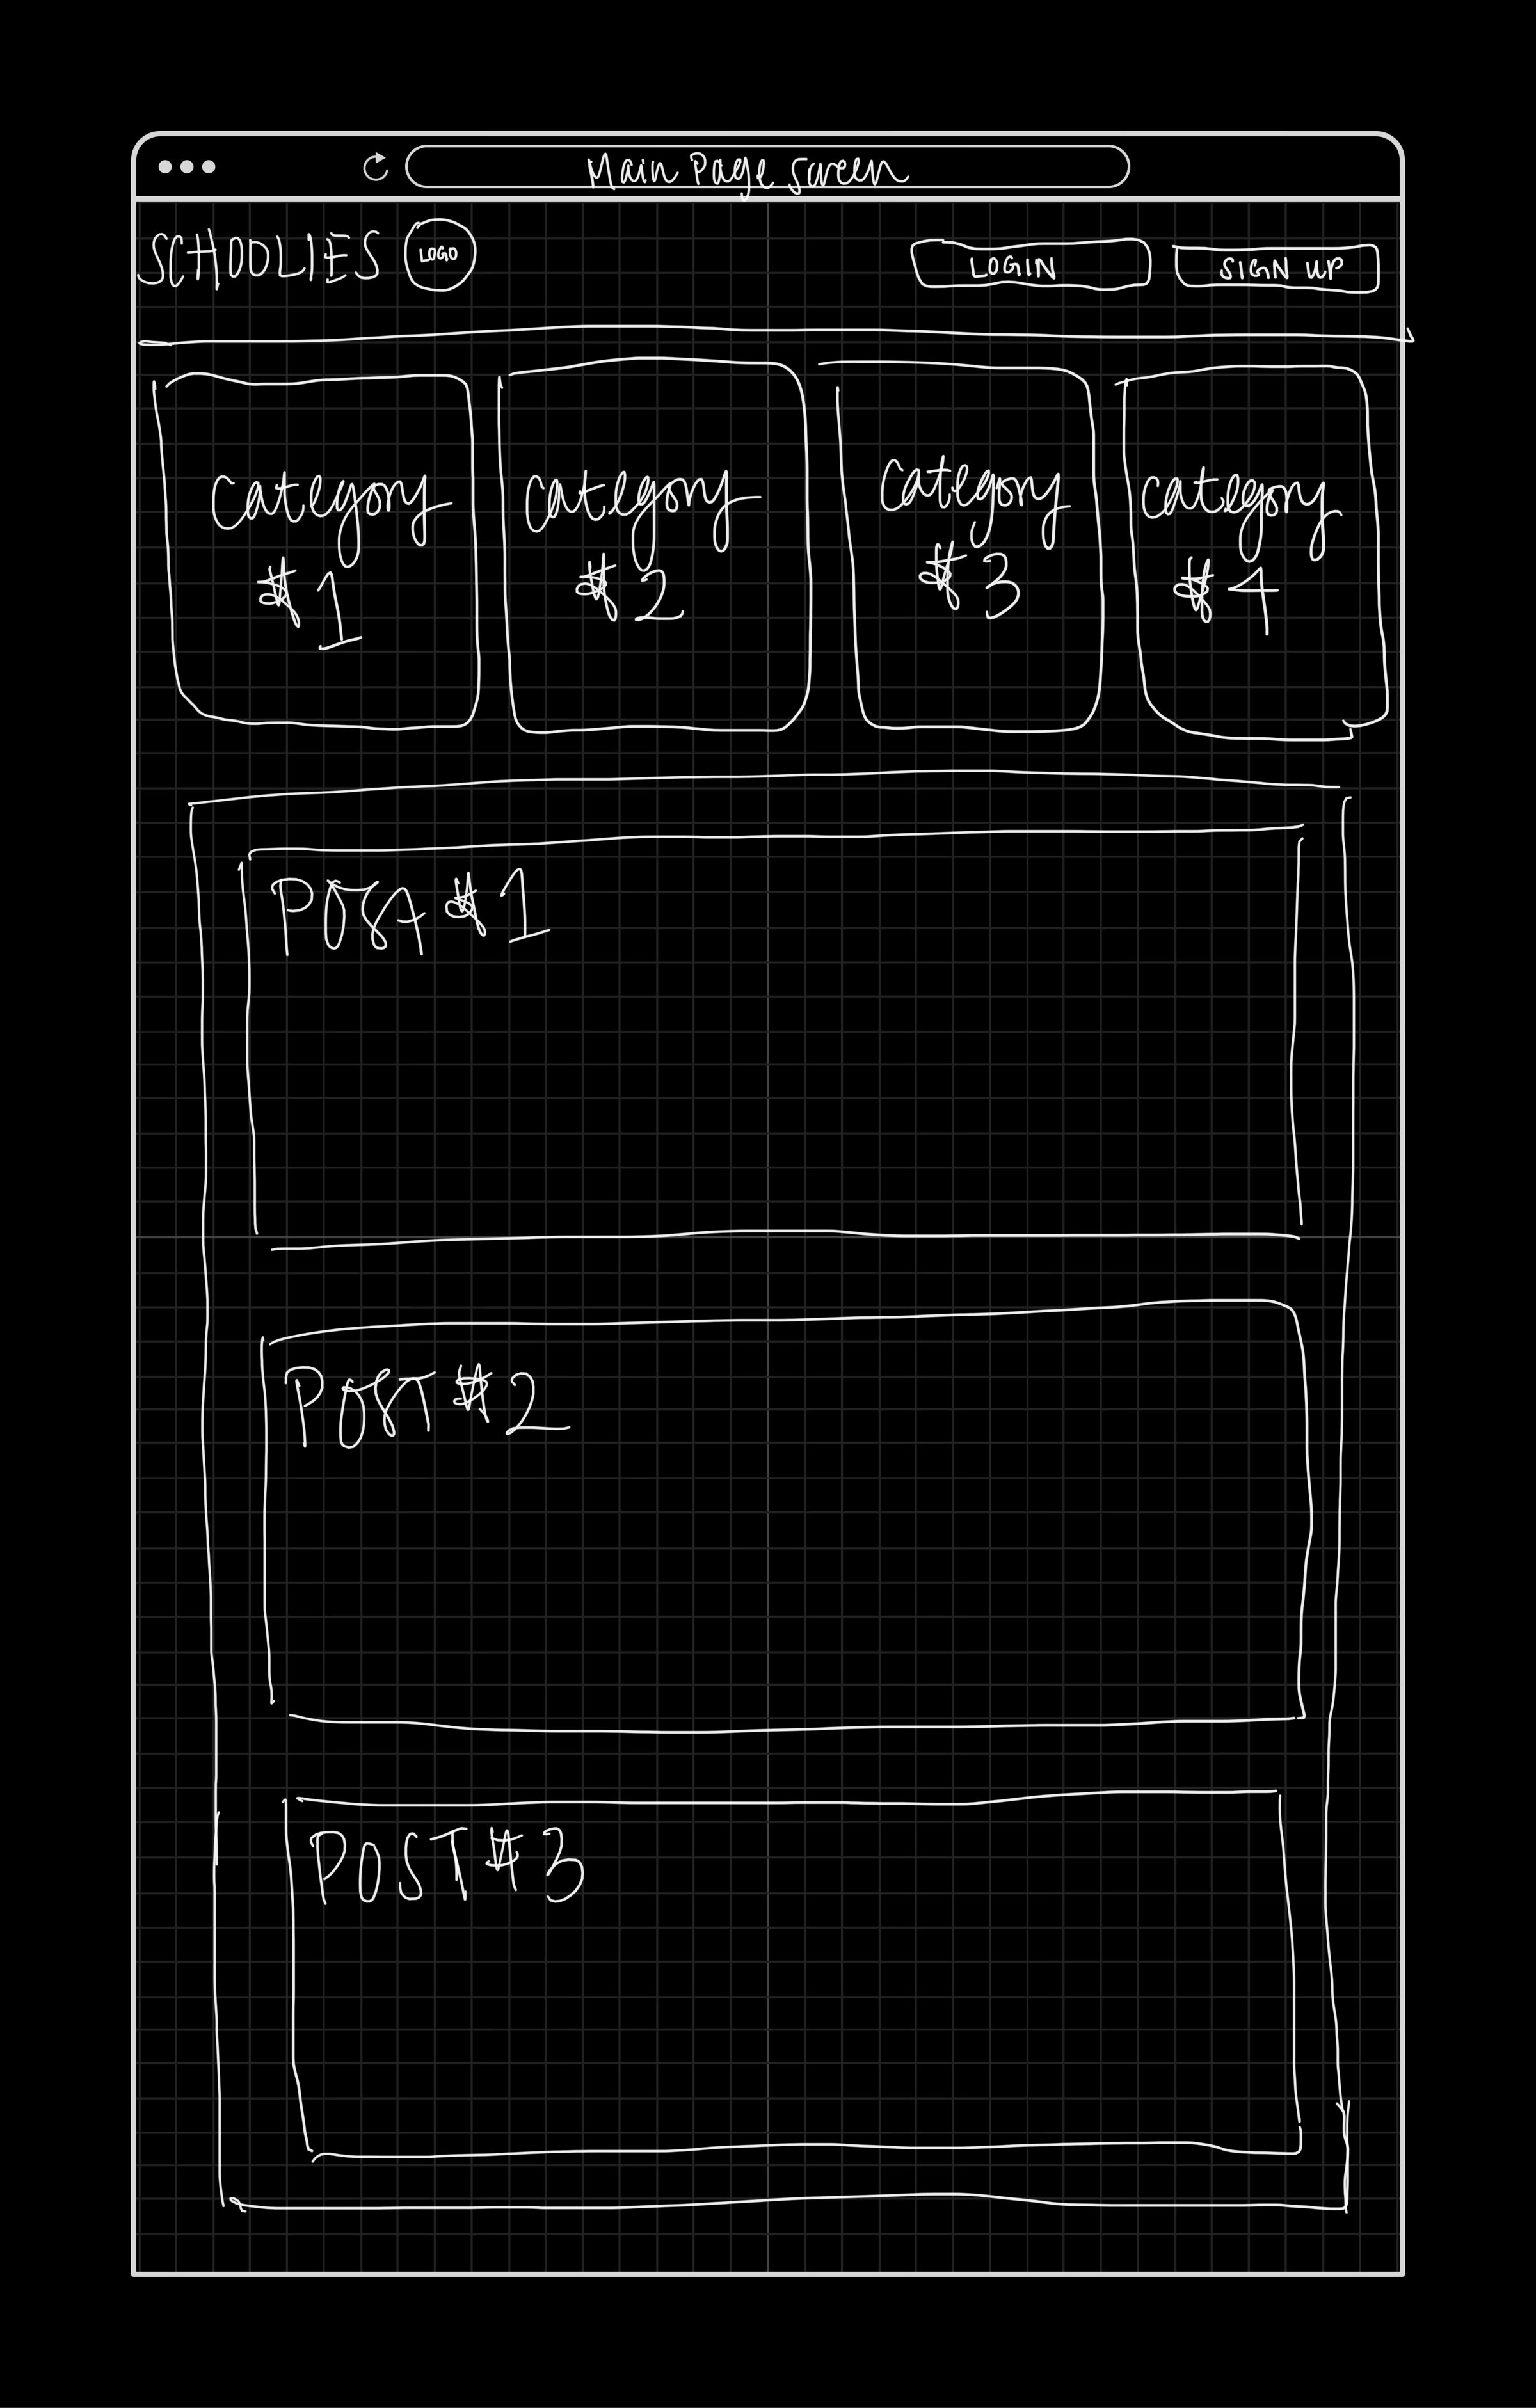 Main Page Screen
SCHOOLIES LOGO LOGIN SIGN UP
Category Category Category Category
#1 #2 #3 #4
POST #1
POST #2
POST #3